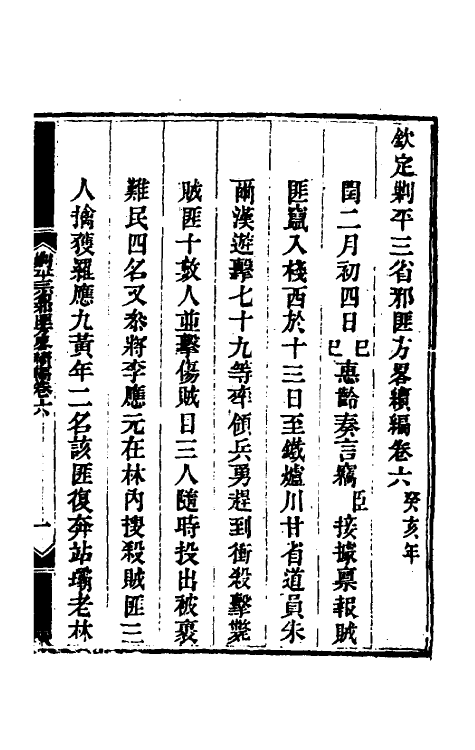 欽定剿平三省邪匪方畧續編卷六 癸亥年
閏二月初四日己巳惠齡奏言竊臣接據稟報賊
匪竄入棧西於十三日至鐵爐川甘省道員朱
爾漢遊擊七十九等率領兵勇趕到衝殺擊斃
賊匪十數人並擊傷賊目三人隨時投出被裹
難民四名又叅將李應元在林內搜殺賊匪三
人擒獲羅應九黃年二名該匪復奔站壩老林
剿平三省邪匪方畧續編卷六
一